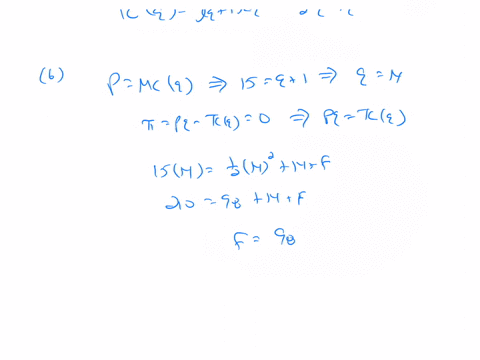 (b) P = MC(q) ⇒ 15 = q + 1 ⇒ q = 14
π = Pq - TC(q) = 0 ⇒ Pq = TC(q)
15(14) = 1/2 (14)² + 14 + F
210 = 98 + 14 + F
F = 98